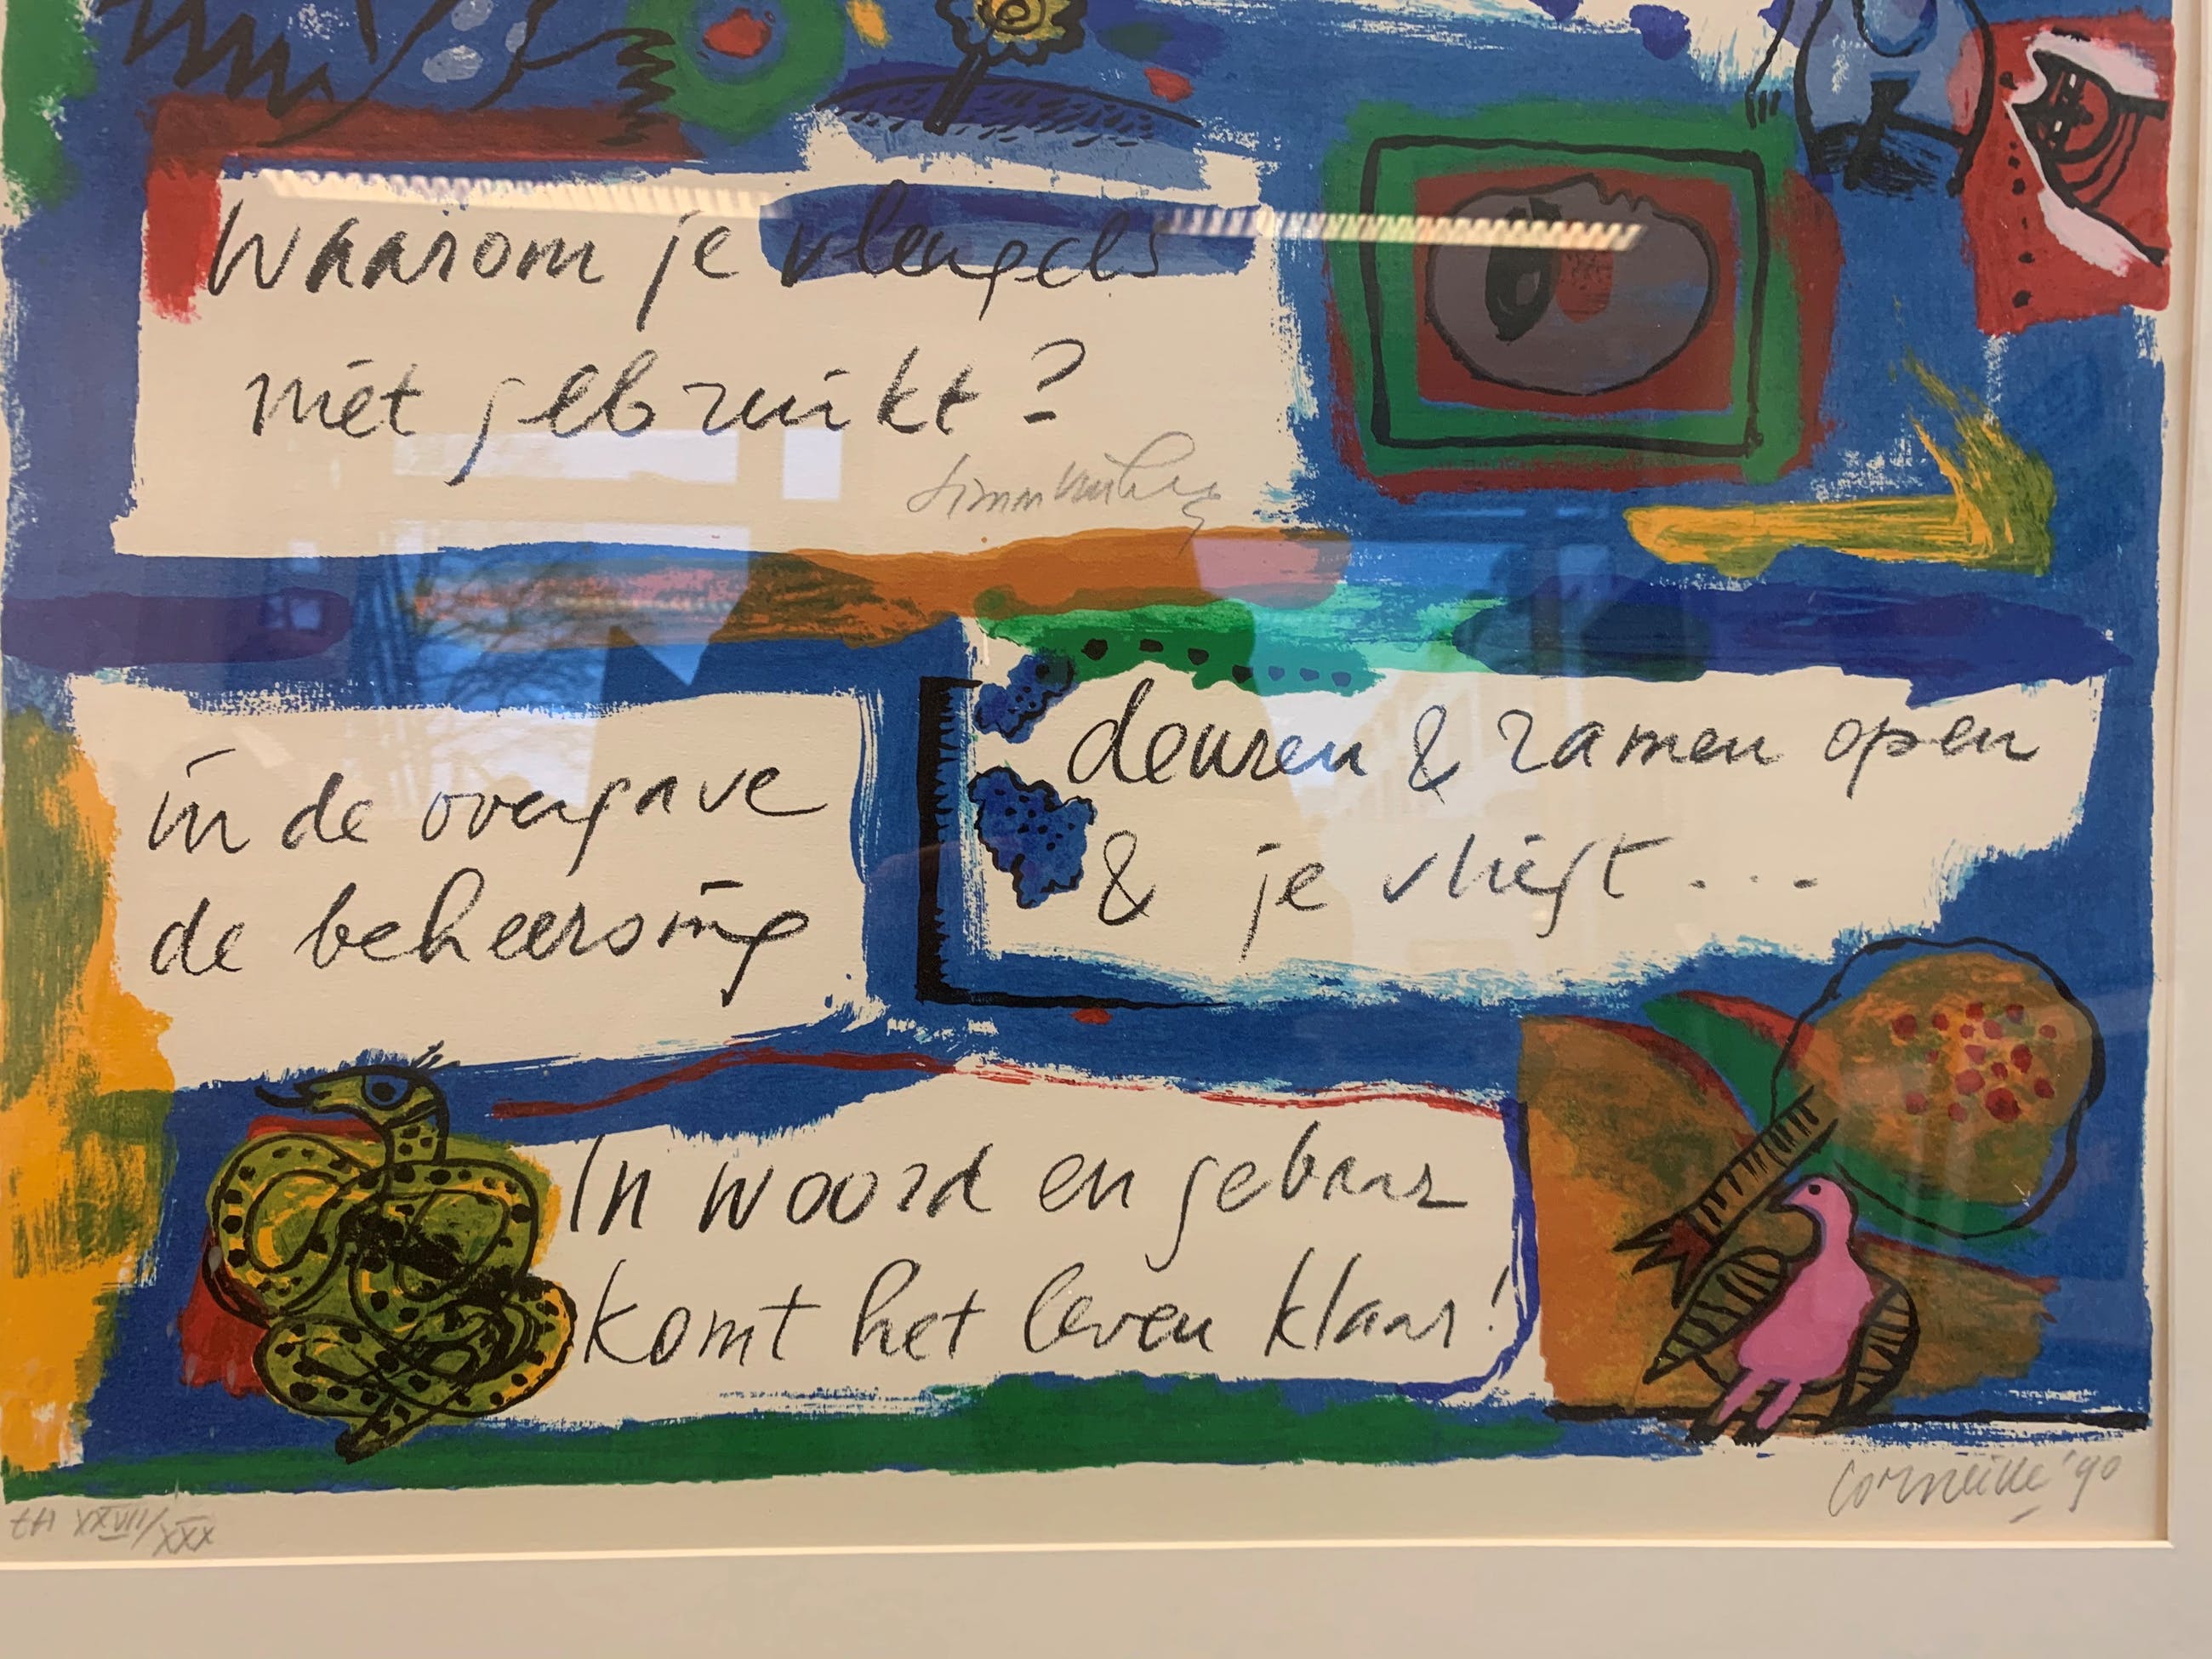 Waarom je vleugels
niet gebruikt?
Simon Vinkenoog
in de overgave
de beheersing
deuren & ramen open
& je vliegt...
In woord en gebaar
komt het leven klaar!
EA XXVII/XXX
Corneille '90